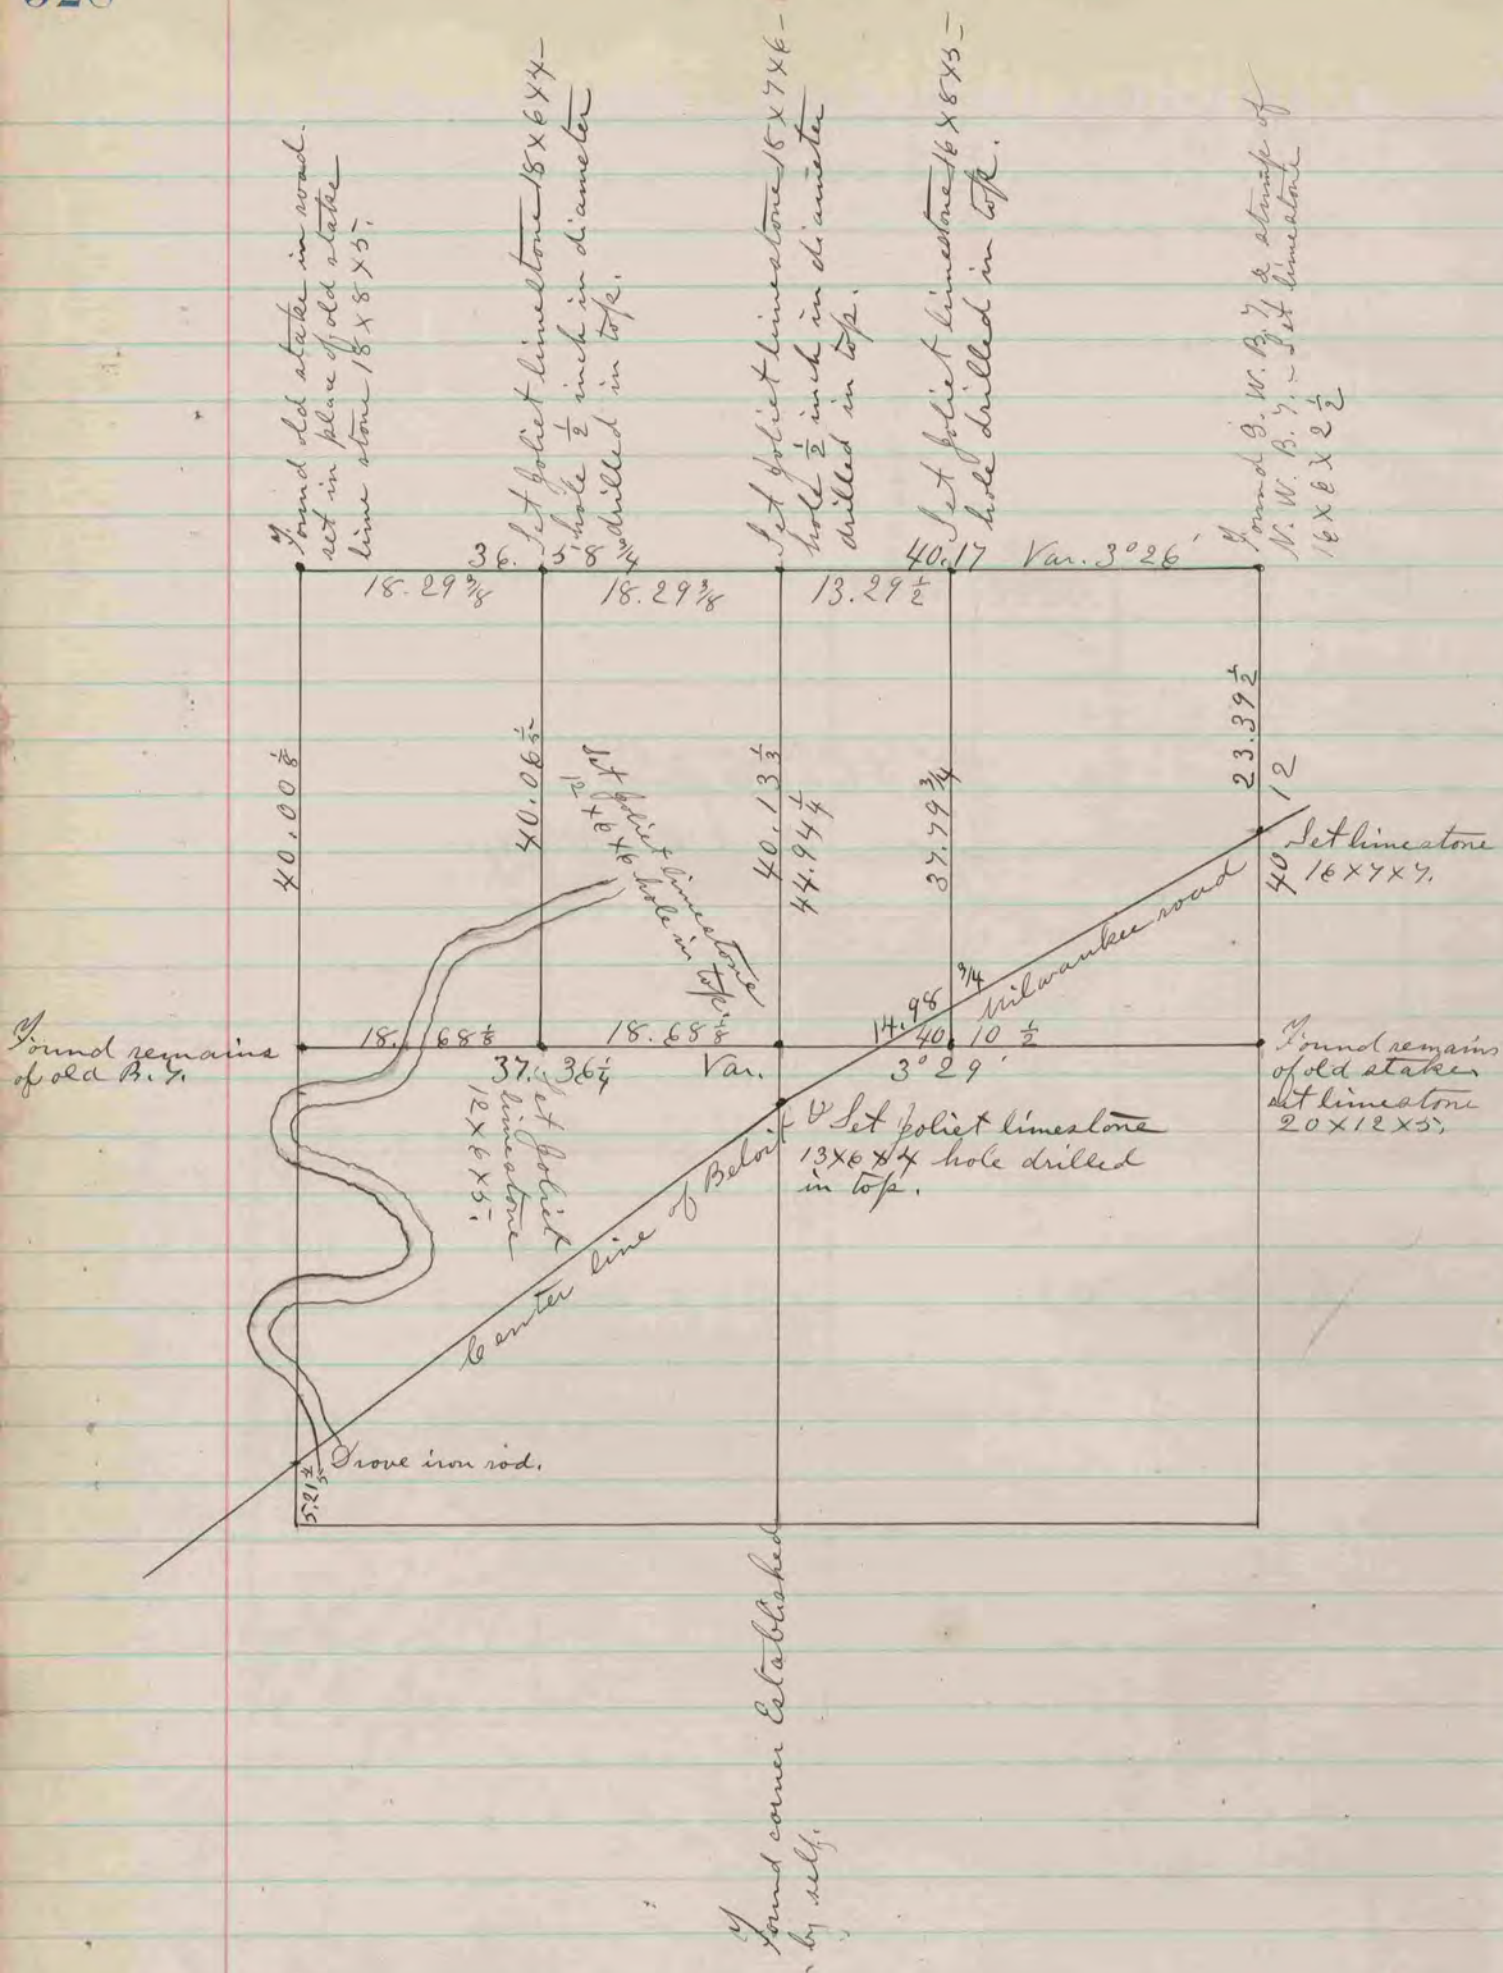 Found old stake in road.
set in place of old stake
lime stone 18 x 8 x 5.
Set Joliet limestone 18 x 6 x 4 -
hole 1/2 inch in diameter
drilled in top.
Set Joliet limestone 18 x 7 x 6 -
hole 1/2 inch in diameter
drilled in top.
Set Joliet limestone 16 x 8 x 5 -
hole drilled in top.
Found S. W. B. T. & stump of
N. W. B. T. - Set limestone
16 x 6 x 2 1/2
36. 58 3/4
40.17 Var. 3° 26'
18.29 3/8
18.29 3/8
13.29 1/2
40.00 1/8
40.06 1/5
40.13 1/3
44.94 1/4
37.79 3/4
23.39 1/2
12
40
Set Joliet limestone
12 x 6 x 6 hole in top.
Set limestone
16 x 7 x 7.
Milwaukee road
14.98 3/4
Found remains
of old B. T.
18. 68 1/8
18.68 1/8
40 10 1/2
37. 36 1/4
Var. 3° 29'
Found remains
of old stake
set limestone
20 x 12 x 5.
Set Joliet
limestone
12 x 6 x 5.
Set Joliet limestone
13 x 6 x 4 hole drilled
in top.
Center line of Beloit &
Drove iron rod.
Found corner Established
by self.